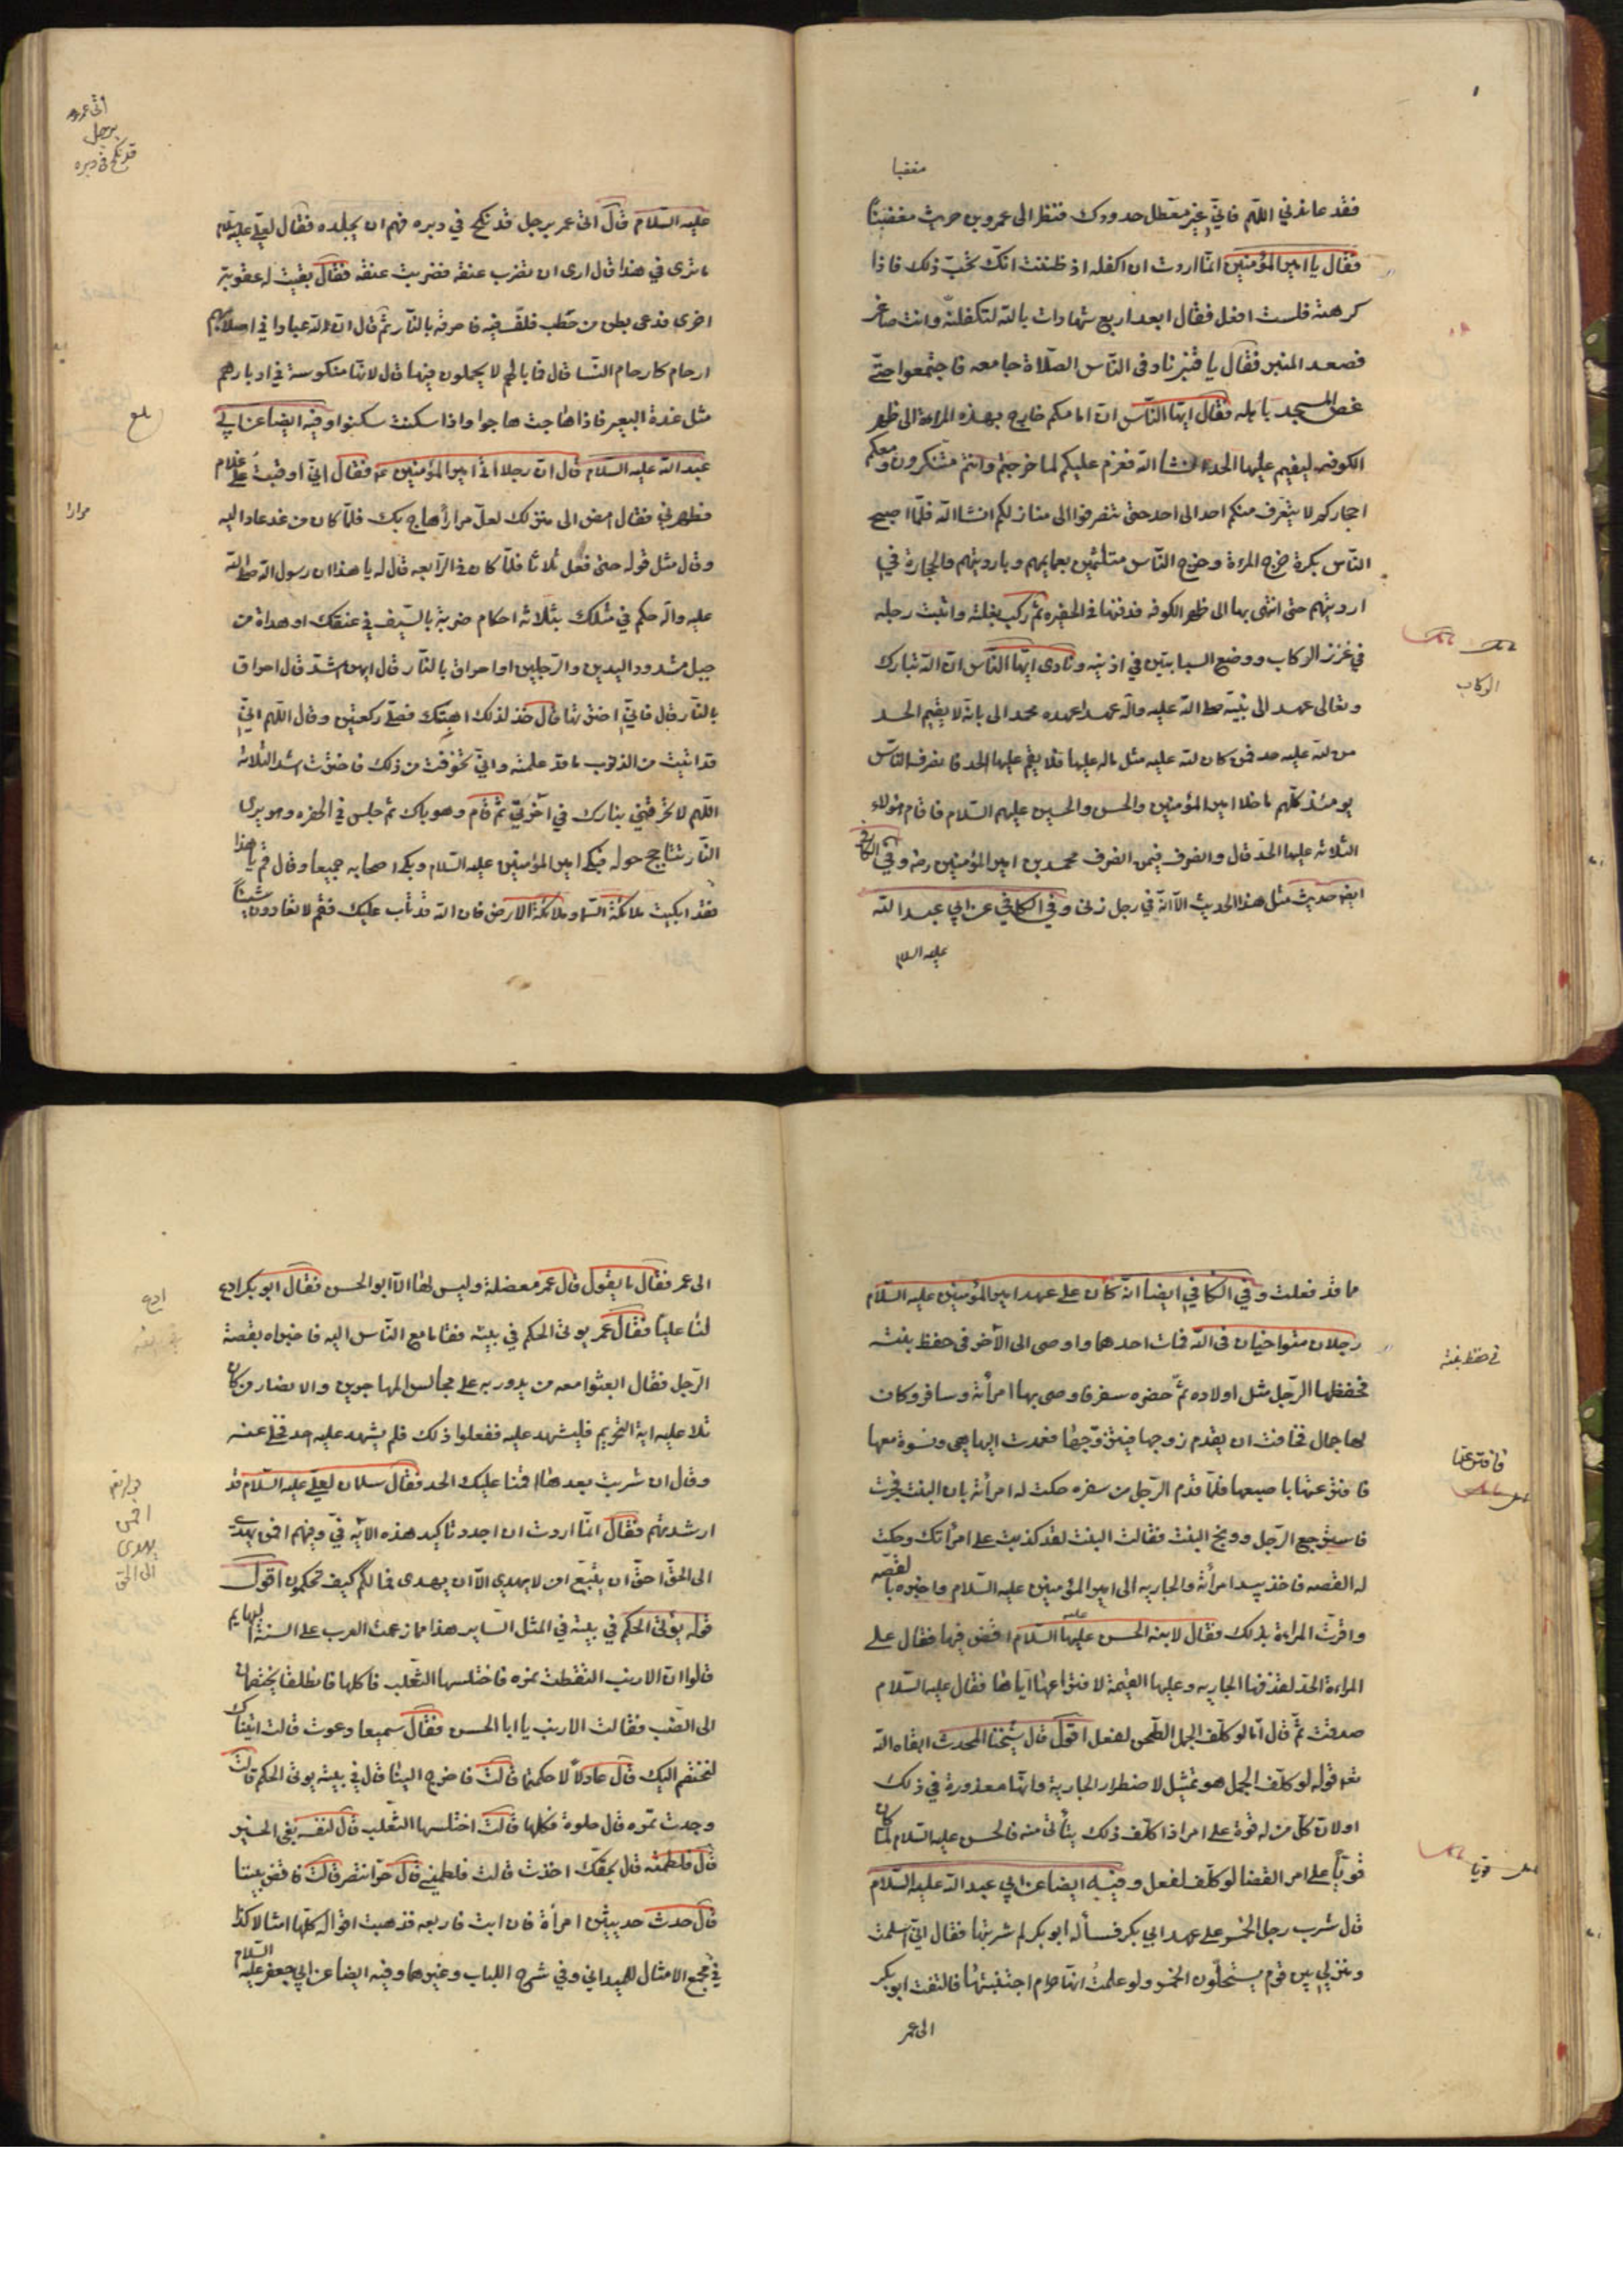 مغضبا
فقد عاندني اللهم فاني غير معطل حدودك فنظر الى عمرو بن حريث مغضبا
فقال يا امير المؤمنين انما اردت ان اكفله اذ ظننت انك تحب ذلك فاذا
كرهته فلست افعل فقال ابعد اربع شهادات بالله لتكفلنه وانت صاغر
فصعد المنبر فقال يا قنبر ناد في الناس الصلاة جامعه فاجتمعوا حتى
غص المسجد باهله فقال ايها الناس ان امامكم خارج بهذه المراة الى ظهر
الكوفه ليقيم عليها الحد انشا الله فعزم عليكم لما خرجتم وانتم متنكرون ومعكم
احجاركم لا يتعرف منكم احد الى احد حتى تنصرفوا الى منازلكم انشا الله فلما اصبح
الناس بكرة خرج المرءة وخرج الناس متلثمين بعمايمهم وبارديتهم والحجارة في
ارديتهم حتى انتهى بها الى ظهر الكوفه فدفنها في الحفيره ثم ركب بغلته واثبت رجله
في غرز الركاب ووضع السبابتين في اذنيه ونادى ايها الناس ان الله تبارك
الركاب
وتعالى عهد الى نبيه صلى الله عليه واله عهدا عهده محمد الى بانه لا يقيم الحد
من لله عليه حد فمن كان لله عليه مثل ماله عليها فلا يقم عليها الحد فانصرف الناس
يومئذ كلهم ما خلا امير المؤمنين والحسن والحسين عليهم السلام فاقام هؤلاء
الثلاثه عليها الحد قال وانصرف فيمن انصرف محمد بن امير المؤمنين رضه وفي الكافي
ايضا حديث مثل هذا الحديث الا انه في رجل زنى وفي الكافي عن ابي عبد الله
عليه السلام
اتى عمر
برجل
قد نكح في دبره
عليه السلام قال اتى عمر برجل قد نكح في دبره فهم ان يجلده فقال لعلي عليه السلام
ما ترى في هذا قال ارى ان تضرب عنقه فضربت عنقه فقال بقيت له عقوبة
اخرى فدعى بطن من حطب فلف فيه فاحرقه بالنار ثم قال ان لله عبادا في اصلابهم
ارحام كارحام النسا قال فما بالهم لا يحملون فيها قال لانها منكوسة في ادبارهم
مثل غدة البعير فاذا هاجت هاجوا واذا سكنت سكنوا وفيه ايضا عن ابي
بلغ
عبد الله عليه السلام قال ان رجلا اتى امير المؤمنين ع فقال اني اوقبت على غلام
فطهرني فقال امض الى منزلك لعل مرارا هاج بك فلما كان من غد عاد اليه
مرارا
وقال مثل قوله حتى فعل ثلاثا فلما كان في الرابعه قال له يا هذا ان رسول الله صلى الله
عليه واله حكم في مثلك بثلاثه احكام ضربة بالسيف في عنقك او هداة من
جبل مشدود اليدين والرجلين او احراق بالنار قال ايهن اشد قال احراق
بالنار قال فاني اخترتها قال خذ لذلك اهبتك فصلى ركعتين وقال اللهم اني
قد اتيت من الذنوب ما قد علمته واني تخوفت من ذلك فاخترت اشد الثلاثه
اللهم لا تحرقني بنارك في اخرتي ثم قام وهو باك ثم جلس في الحفره وهو يرى
النار تتاجج حوله فبكى امير المؤمنين عليه السلام وبكى اصحابه جميعا وقال قم يا هذا
فقد ابكيت ملائكة السماء وملائكة الارض فان الله قد تاب عليك فقم لا تعاودن شيئا
ما قد فعلت وفي الكافي ايضا انه كان على عهد امير المؤمنين عليه السلام
رجلان متواخيان في الله فمات احدهما واوصى الى الآخر في حفظ بنته
في حفظ بنته
فحفظها الرجل مثل اولاده ثم حضره سفر فاوصى بها امرأته وسافر وكان
لها جمال فخافت ان يقدم زوجها فيتزوجها فعمدت اليها هي ونسوة معها
فافترعنها باصبعها فلما قدم الرجل من سفره حكت له امرأته بان البنت فجرت
فاسترجع الرجل ووبخ البنت فقالت البنت لقد كذبت على امرأتك وحكت
له القصه فاخذ بيد امرأته والجاريه الى امير المؤمنين عليه السلام فاخبره بالقصه
واقرت المراءة بذلك فقال لابنه الحسن عليهما السلام اقض فيها فقال على
المراءة الحد لقذفها الجاريه وعليها القيمة لافتراعها اياها فقال عليه السلام
صدقت ثم قال اما لو كلف الجمل الطحن لفعل اقول قال شيخنا المحدث ابقاه الله
تعه قوله لو كلف الجمل هو تمثيل لاضطرار الجارية وانها معذورة في ذلك
اولان كل من له قوة على امر اذا كلف ذلك يتأتى منه فالحسن عليه السلام لما كان
قويا على امر القضا لو كلف لفعل وفيه ايضا عن ابي عبد الله عليه السلام
قويا
قال شرب رجل الخمر على عهد ابي بكر فسأله ابو بكر لم شربتها فقال اني اسلمت
ومنزلي بين قوم يستحلون الخمر ولو علمت انها حرام اجتنبتها فالتفت ابو بكر
الى عمر
الى عمر فقال ما يقول قال عمر معضلة وليس لها الا ابو الحسن فقال ابو بكر ادع
ادع
لنا عليا فقال عمر يؤتى الحكم في بيته فقاما مع الناس اليه فاخبراه بقصة
الرجل فقال ابعثوا معه من يدور به على مجالس المهاجرين والانصار من كان
تلا عليه اية التحريم فليشهد عليه ففعلوا ذلك فلم يشهد عليه احد فخلى عنه
وقال ان شربت بعدها اقمنا عليك الحد فقال سلمان لعلي عليه السلام قد
ارشدتهم فقال انما اردت ان اجدد تاكيد هذه الآيه في وفيهم افمن يهدى
افمن
يهدى
الى الحق
الى الحق احق ان يتبع امن لا يهدي الا ان يهدى فما لكم كيف تحكمون اقول
قوله يؤتى الحكم في بيته في المثل الساير هذا مما زعمت العرب على السنة البهايم
قالوا ان الارنب التقطت تمره فاختلسها الثعلب فاكلها فانطلقا يختصمان
الى الضب فقالت الارنب يا ابا الحسن فقال سميعا دعوت قالت اتيناك
لنختصم اليك قال عادلا حكمتما قالت فاخرج الينا قال في بيته يؤتى الحكم قالت
وجدت تمره قال حلوة فكلها قالت اختلسها الثعلب قال لنفسه بغى الخير
قال فلطمته قال بحقك اخذت قالت فلطمني قال حر انتصر قالت فاقض بيننا
قال حدث حديثين امرأة فان ابت فاربعه فذهبت اقواله كلها امثالا كذا
في مجمع الامثال للميداني وفي شرح اللباب وغيرهما وفيه ايضا عن ابي جعفر عليه السلام